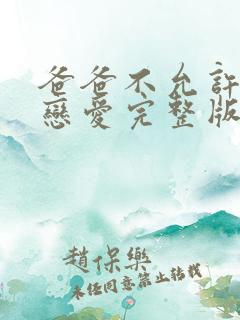 爸爸不允許
戀愛完整版
趙保樂
未任同意禁止轉載